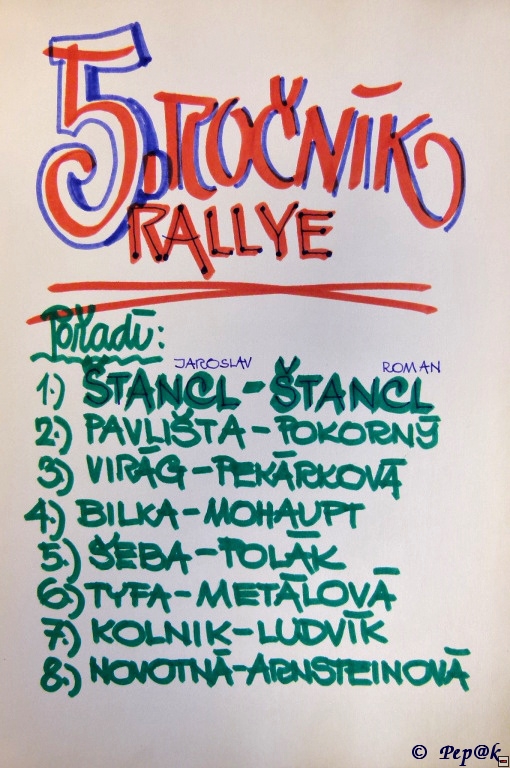 5. ROČNÍK
RALLYE
Pořadí:
JAROSLAV ROMAN
1.) ŠTANCL-ŠTANCL
2.) PAVLIŠTA-POKORNÝ
3.) VIRÁG-PEKÁRKOVÁ
4.) BILKA-MOHAUPT
5.) ŠEBA-POLÁK
6.) TYFA-METÁLOVÁ
7.) KOLNIK-LUDVÍK
8.) NOVOTNÁ-ARNSTEINOVÁ
© Pep@k